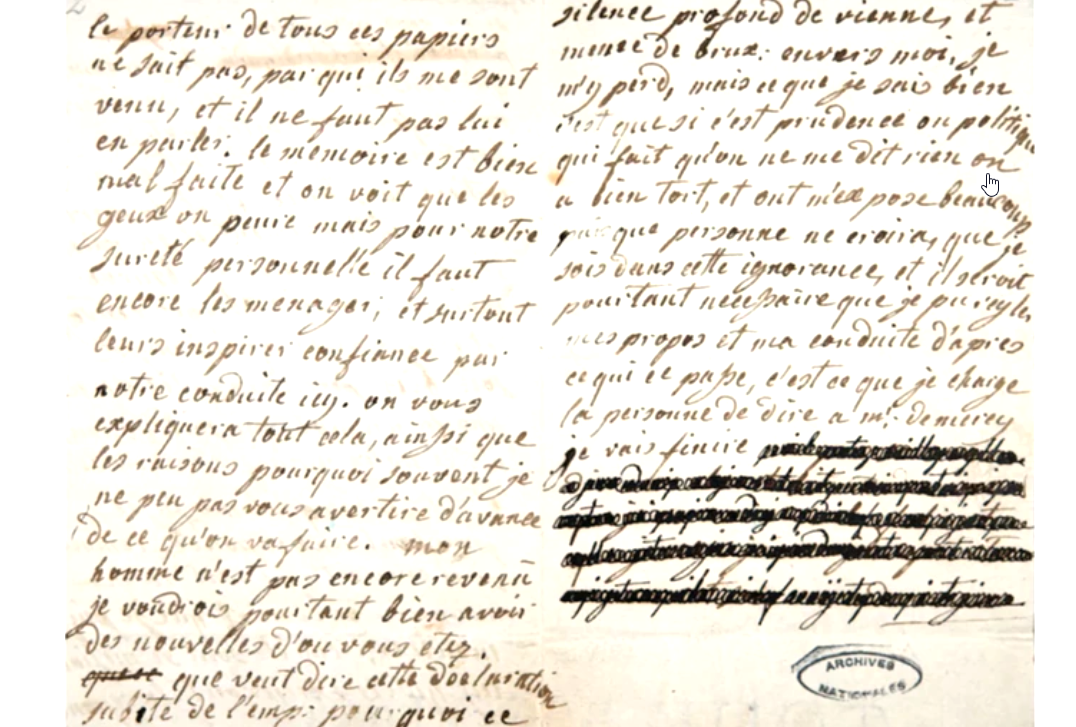 le porteur de tous ces papiers
ne sait pas, par qui ils me sont
venu, et il ne faut pas lui
en parler. le memoire est bien
mal faite et on voit que les
geux on peure mais pour notre
sureté personnelle il faut
encore les menager, et surtout
leurs inspirer confiance par
notre conduite icy. on vous
expliquera tout cela, ainssi que
les raisons pourquoi souvent je
ne peu pas vous avertire d'avance
de ce qu'on va faire. mon
homme n'est pas encore revenu
je voudrois pourtant bien avoir
des nouvelles d'ou vous etez.
que veut dire cette declaration
subite de l'emp: pourquoi ce
silence profond de vienne, et
meme de brux: envers moi, je
m'y perd, mais ce que je sais bien
c'est que si c'est prudence ou politique
qui fait qu'on ne me dit rien on
a bien tort, et ont m'expose beaucoup
puisque personne ne croira, que je
sois dans cette ignorance, et il seroit
pourtant necessaire que je pu regler
mes propos et ma conduite d'apres
ce qui ce passe, c'est ce que je charge
la personne de dire a mr: de mercy
je vais finire
ARCHIVES
NATIONALES